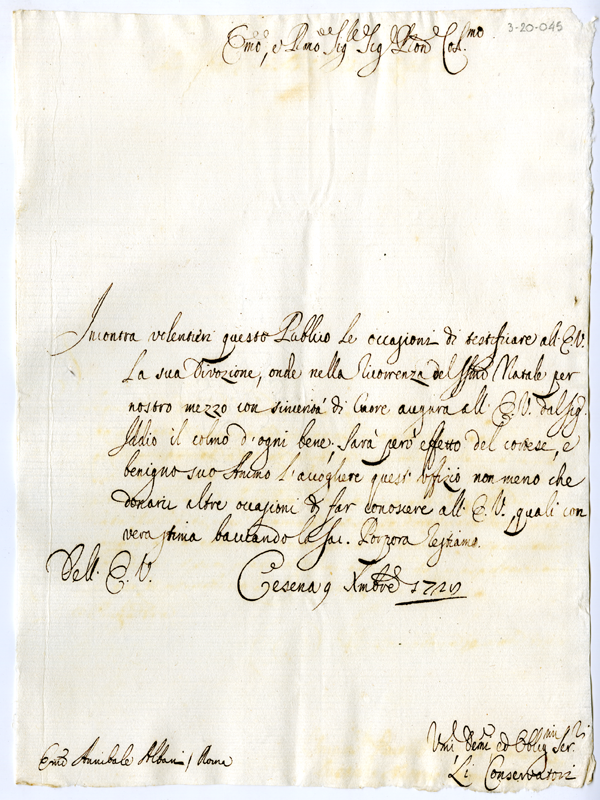 3-20-045
Emo, e Rmo Sig.re Sig.re Pron Col.mo
Incontra volentieri questo Publico le occasioni di testificare all' E.V.
la sua Divozione, onde nella ricorrenza del SSmo Natale per
nostro mezzo con sincerità di Cuore augura all' E.V. dal Sig.
Iddio il colmo d'ogni bene; sarà però effetto del cortese, e
benigno suo Animo l'accogliere quest' Offizio non meno che
donarci altre occasioni di far conoscere all' E.V., quali con
vera stima bacciando la Sac. Porpora restiamo.
Dell' E.V.
Cesena 9 Xmbre
Umi Demi ed Oblig.mi Ser.ri
Emo Annibale Albani / Roma
Li Conservatori